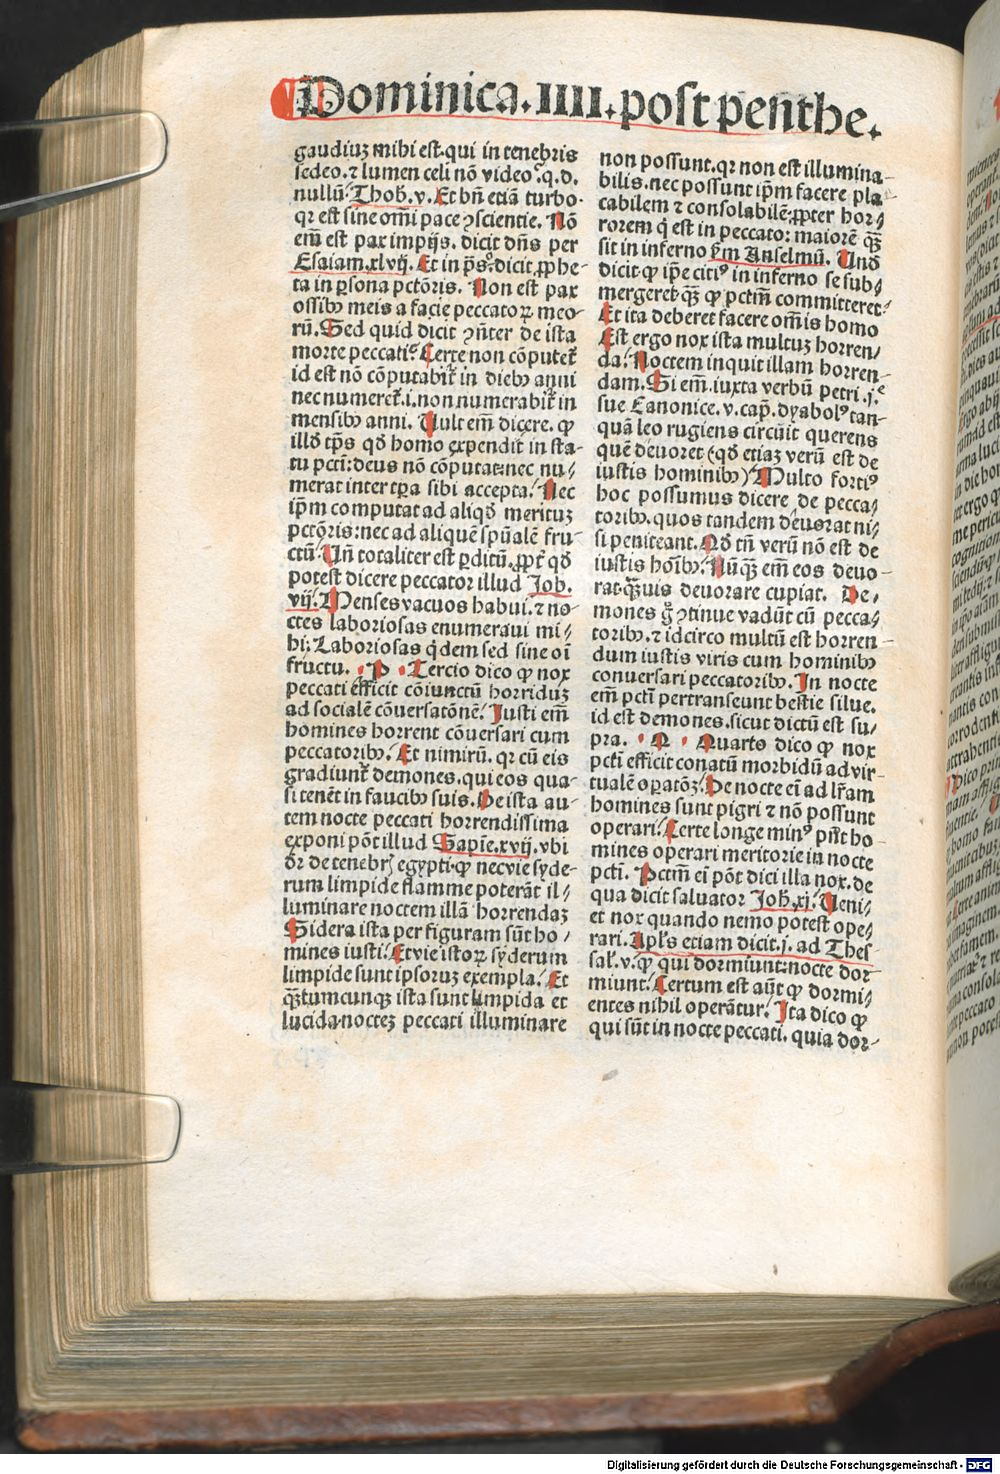 Dominica.IIII.post penthe.
gaudiuz mihi est.qui in tenebris
sedeo.⁊ lumen celi nõ video?q.d.
nullũ. Thob.v. Et bñ etiã turbo.
qr est sine omni pace ꝯscientie. Nõ
em̃ est pax impijs. dicit dñs per
Esaiam.xlvij. Et in p̃s.dicit ꝓphe-
ta in ꝑsona pctõris. Non est pax
ossibꝰ meis a facie peccatoꝝ meo-
rũ. Sed quid dicit ꝯñter de ista
morte peccati? Certe non cõputet̃
id est nõ cõputabit̃ in diebꝰ anni
nec numeret̃.i.non numerabit̃ in
mensibꝰ anni. Uult em̃ dicere. ꝙ
illđ tp̃s qđ homo expendit in sta-
tu pcti:deus nõ cõputat:nec nu/
merat inter tꝑa sibi accepta. Nec
ip̃m computat ad aliqđ merituz
pctõris:nec ad aliquẽ sp̃ualẽ fru-
ctũ. Uñ totaliter est ꝑditũ.ꝓpt̃ qđ
potest dicere peccator illud Job.
vij. Menses vacuos habui.⁊ no-
ctes laboriosas enumeraui mi/
hi: Laboriosas q̃dem sed sine oĩ
fructu. P Tercio dico ꝙ nox
peccati efficit cõiunctũ horriduz
ad socialẽ cõuersatõnẽ. Justi em̃
homines horrent cõuersari cum
peccatoribꝰ. Et nimirũ. qr cũ eis
gradiunt̃ demones.qui eos qua-
si tenẽt in faucibꝰ suis. De ista au-
tem nocte peccati horrendissima
exponi põt illud Sapie.xvij.vbi
đr de tenebr̃ egypti.ꝙ nec vie syde-
rum limpide flamme poterãt il/
luminare noctem illã horrendaz
Sidera ista per figuram sũt ho/
mines iusti. Et vie istoꝝ syderum
limpide sunt ipsoruz exempla. Et
q̃ꝫtumcunqꝫ ista sunt limpida et
lucida.noctez peccati illuminare
non possunt.qr non est illumina-
bilis.nec possunt ip̃m facere pla-
cabilem ⁊ consolabilẽ:ꝓpter hor/
rorem q̃ est in peccato: maiorẽ q̃ꝫ
sit in inferno ẜm Anselmũ. Unđ
dicit ꝙ ip̃e citiꝰ in inferno se sub/
mergeret q̃ꝫ ꝙ pctm̃ committeret.
Et ita deberet facere om̃is homo
Est ergo nox ista multuz horren/
da. Noctem inquit illam horren-
dam. Si em̃.iuxta verbũ petri.j.ᵉ
sue Canonice.v.cap̃.dyabolꝰ tan-
quã leo rugiens circũit querens
quẽ deuoret (qđ etiaz verũ est de
iustis hominibꝰ) Multo fortiꝰ
hoc possumus dicere de pecca/
toribꝰ.quos tandem deuorat ni/
si peniteant. Qđ tñ verũ nõ est de
iustis hoĩbꝰ. Nũq̃ꝫ em̃ eos deuo-
rat.q̃ꝫuis deuorare cupiat. De/
mones g̃ ꝯtinue vadũt cũ pecca/
toribꝰ.⁊ idcirco multũ est horren-
dum iustis viris cum hominibꝰ
conuersari peccatoribꝰ. In nocte
em̃ pcti pertranseunt bestie silue.
id est demones.sicut dictũ est su/
pra. Q Quarto dico ꝙ nox
pcti efficit conatũ morbidũ ad vir-
tualẽ oꝑatõz. De nocte eĩ ad lr̃am
homines sunt pigri ⁊ nõ possunt
operari. Certe longe minꝰ pñt ho-
mines operari meritorie in nocte
pcti. Pctm̃ eĩ põt dici illa nox.de
qua dicit saluator Joh̃.xj. Ueni/
et nox quando nemo potest ope/
rari. Apl̃s etiam dicit.j.ad Thes
sal̃.v.ꝙ qui dormiunt:nocte dor-
miunt. Certum est aũt ꝙ dormi/
entes nihil operãtur. Ita dico ꝙ
qui sũt in nocte peccati. quia dor-
Digitalisierung gefördert durch die Deutsche Forschungsgemeinschaft - DFG